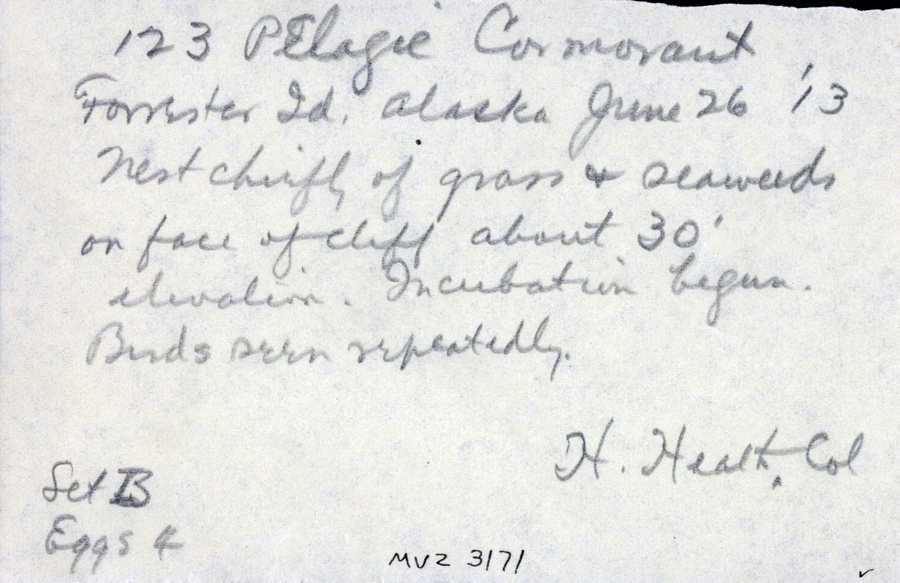 123 Pelagic Cormorant
Forrester Id. Alaska June 26 '13
Nest chiefly of grass & seaweeds
on face of cliff about 30'
elevation. Incubation begun.
Birds seen repeatedly.
H. Heath, Col
Set B
Eggs 4
MVZ 3171